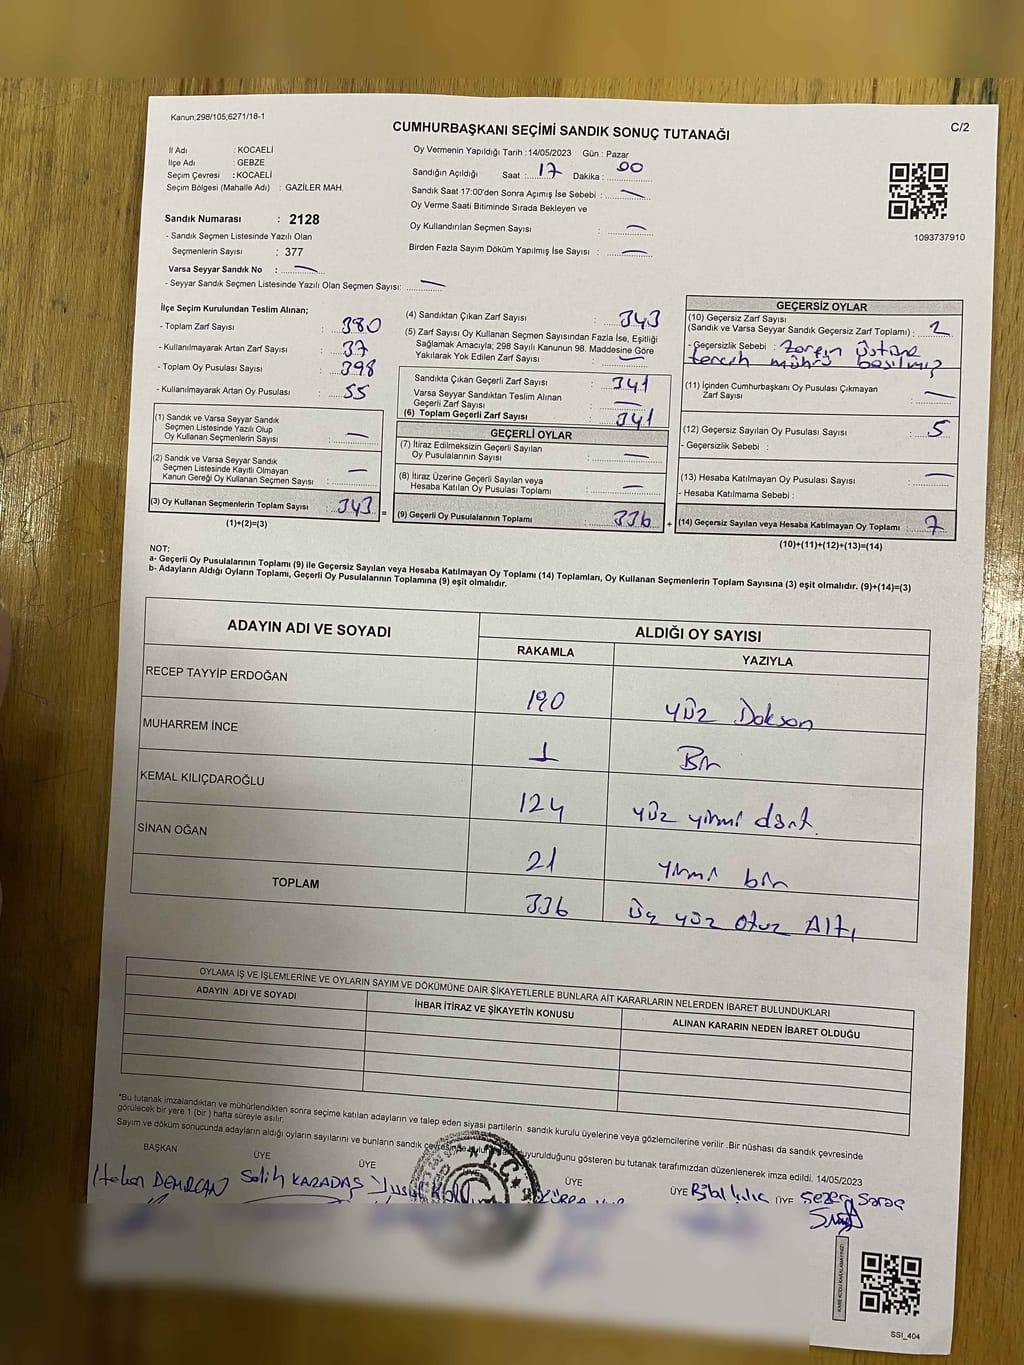 Kanun;298/105,6271/18-1
CUMHURBAŞKANI SEÇİMİ SANDIK SONUÇ TUTANAĞI
C/2
İl Adı : KOCAELİ
İlçe Adı : GEBZE
Seçim Çevresi : KOCAELİ
Seçim Bölgesi (Mahalle Adı) : GAZİLER MAH.
Sandık Numarası : 2128
- Sandık Seçmen Listesinde Yazılı Olan
Seçmenlerin Sayısı : 377
Varsa Seyyar Sandık No : —
- Seyyar Sandık Seçmen Listesinde Yazılı Olan Seçmen Sayısı: —
Oy Vermenin Yapıldığı Tarih :14/05/2023 Gün : Pazar
Sandığın Açıldığı Saat : 17 Dakika : 00
Sandık Saat 17:00'den Sonra Açımış İse Sebebi : —
Oy Verme Saati Bitiminde Sırada Bekleyen ve
Oy Kullandırılan Seçmen Sayısı : —
Birden Fazla Sayım Döküm Yapılmış İse Sayısı : —
1093737910
İlçe Seçim Kurulundan Teslim Alınan;
- Toplam Zarf Sayısı : 380
- Kullanılmayarak Artan Zarf Sayısı : 37
- Toplam Oy Pusulası Sayısı : 398
- Kullanılmayarak Artan Oy Pusulası : 55
(1) Sandık ve Varsa Seyyar Sandık
Seçmen Listesinde Yazılı Olup
Oy Kullanan Seçmenlerin Sayısı : —
(2) Sandık ve Varsa Seyyar Sandık
Seçmen Listesinde Kayıtlı Olmayan
Kanun Gereği Oy Kullanan Seçmen Sayısı : —
(3) Oy Kullanan Seçmenlerin Toplam Sayısı : 343 =
(1)+(2)=(3)
(4) Sandıktan Çıkan Zarf Sayısı : 343
(5) Zarf Sayısı Oy Kullanan Seçmen Sayısından Fazla İse, Eşitliği
Sağlamak Amacıyla; 298 Sayılı Kanunun 98. Maddesine Göre
Yakılarak Yok Edilen Zarf Sayısı : —
Sandıkta Çıkan Geçerli Zarf Sayısı : 341
Varsa Seyyar Sandıktan Teslim Alınan
Geçerli Zarf Sayısı : —
(6) Toplam Geçerli Zarf Sayısı : 341
GEÇERLİ OYLAR
(7) İtiraz Edilmeksizin Geçerli Sayılan
Oy Pusulalarının Sayısı : —
(8) İtiraz Üzerine Geçerli Sayılan veya
Hesaba Katılan Oy Pusulası Toplamı : —
(9) Geçerli Oy Pusulalarının Toplamı : 336 +
GEÇERSİZ OYLAR
(10) Geçersiz Zarf Sayısı
(Sandık ve Varsa Seyyar Sandık Geçersiz Zarf Toplamı) : 2
- Geçersizlik Sebebi : Zarfın üstüne
tercih mührü basılmış
(11) İçinden Cumhurbaşkanı Oy Pusulası Çıkmayan
Zarf Sayısı : —
(12) Geçersiz Sayılan Oy Pusulası Sayısı : 5
- Geçersizlik Sebebi :
(13) Hesaba Katılmayan Oy Pusulası Sayısı : —
- Hesaba Katılmama Sebebi :
(14) Geçersiz Sayılan veya Hesaba Katılmayan Oy Toplamı : 7
(10)+(11)+(12)+(13)=(14)
NOT:
a- Geçerli Oy Pusulalarının Toplamı (9) ile Geçersiz Sayılan veya Hesaba Katılmayan Oy Toplamı (14) Toplamları, Oy Kullanan Seçmenlerin Toplam Sayısına (3) eşit olmalıdır. (9)+(14)=(3)
b- Adayların Aldığı Oyların Toplamı, Geçerli Oy Pusulalarının Toplamına (9) eşit olmalıdır.
ADAYIN ADI VE SOYADI
ALDIĞI OY SAYISI
RAKAMLA YAZIYLA
RECEP TAYYİP ERDOĞAN 190 yüz Doksan
MUHARREM İNCE 1 Bir
KEMAL KILIÇDAROĞLU 124 yüz yirmi dört.
SİNAN OĞAN 21 yirmi bir
TOPLAM 336 üç yüz otuz Altı
OYLAMA İŞ VE İŞLEMLERİNE VE OYLARIN SAYIM VE DÖKÜMÜNE DAİR ŞİKAYETLERLE BUNLARA AİT KARARLARIN NELERDEN İBARET BULUNDUKLARI
ADAYIN ADI VE SOYADI İHBAR İTİRAZ VE ŞİKAYETİN KONUSU ALINAN KARARIN NEDEN İBARET OLDUĞU
*Bu tutanak imzalandıktan ve mühürlendikten sonra seçime katılan adayların ve talep eden siyasi partilerin sandık kurulu üyelerine veya gözlemcilerine verilir .Bir nüshası da sandık çevresinde
görülecek bir yere 1 (bir ) hafta süreyle asılır.
Sayım ve döküm sonucunda adayların aldığı oyların sayılarını ve bunların sandık çevresinde duyurulduğunu gösteren bu tutanak tarafımızdan düzenlenerek imza edildi. 14/05/2023
BAŞKAN ÜYE ÜYE ÜYE ÜYE ÜYE ÜYE
Hakan DEMİRCAN Salih KARADAŞ Yusuf Bilal Kılıç Sezer Saraç
T.C.
SSİ_404